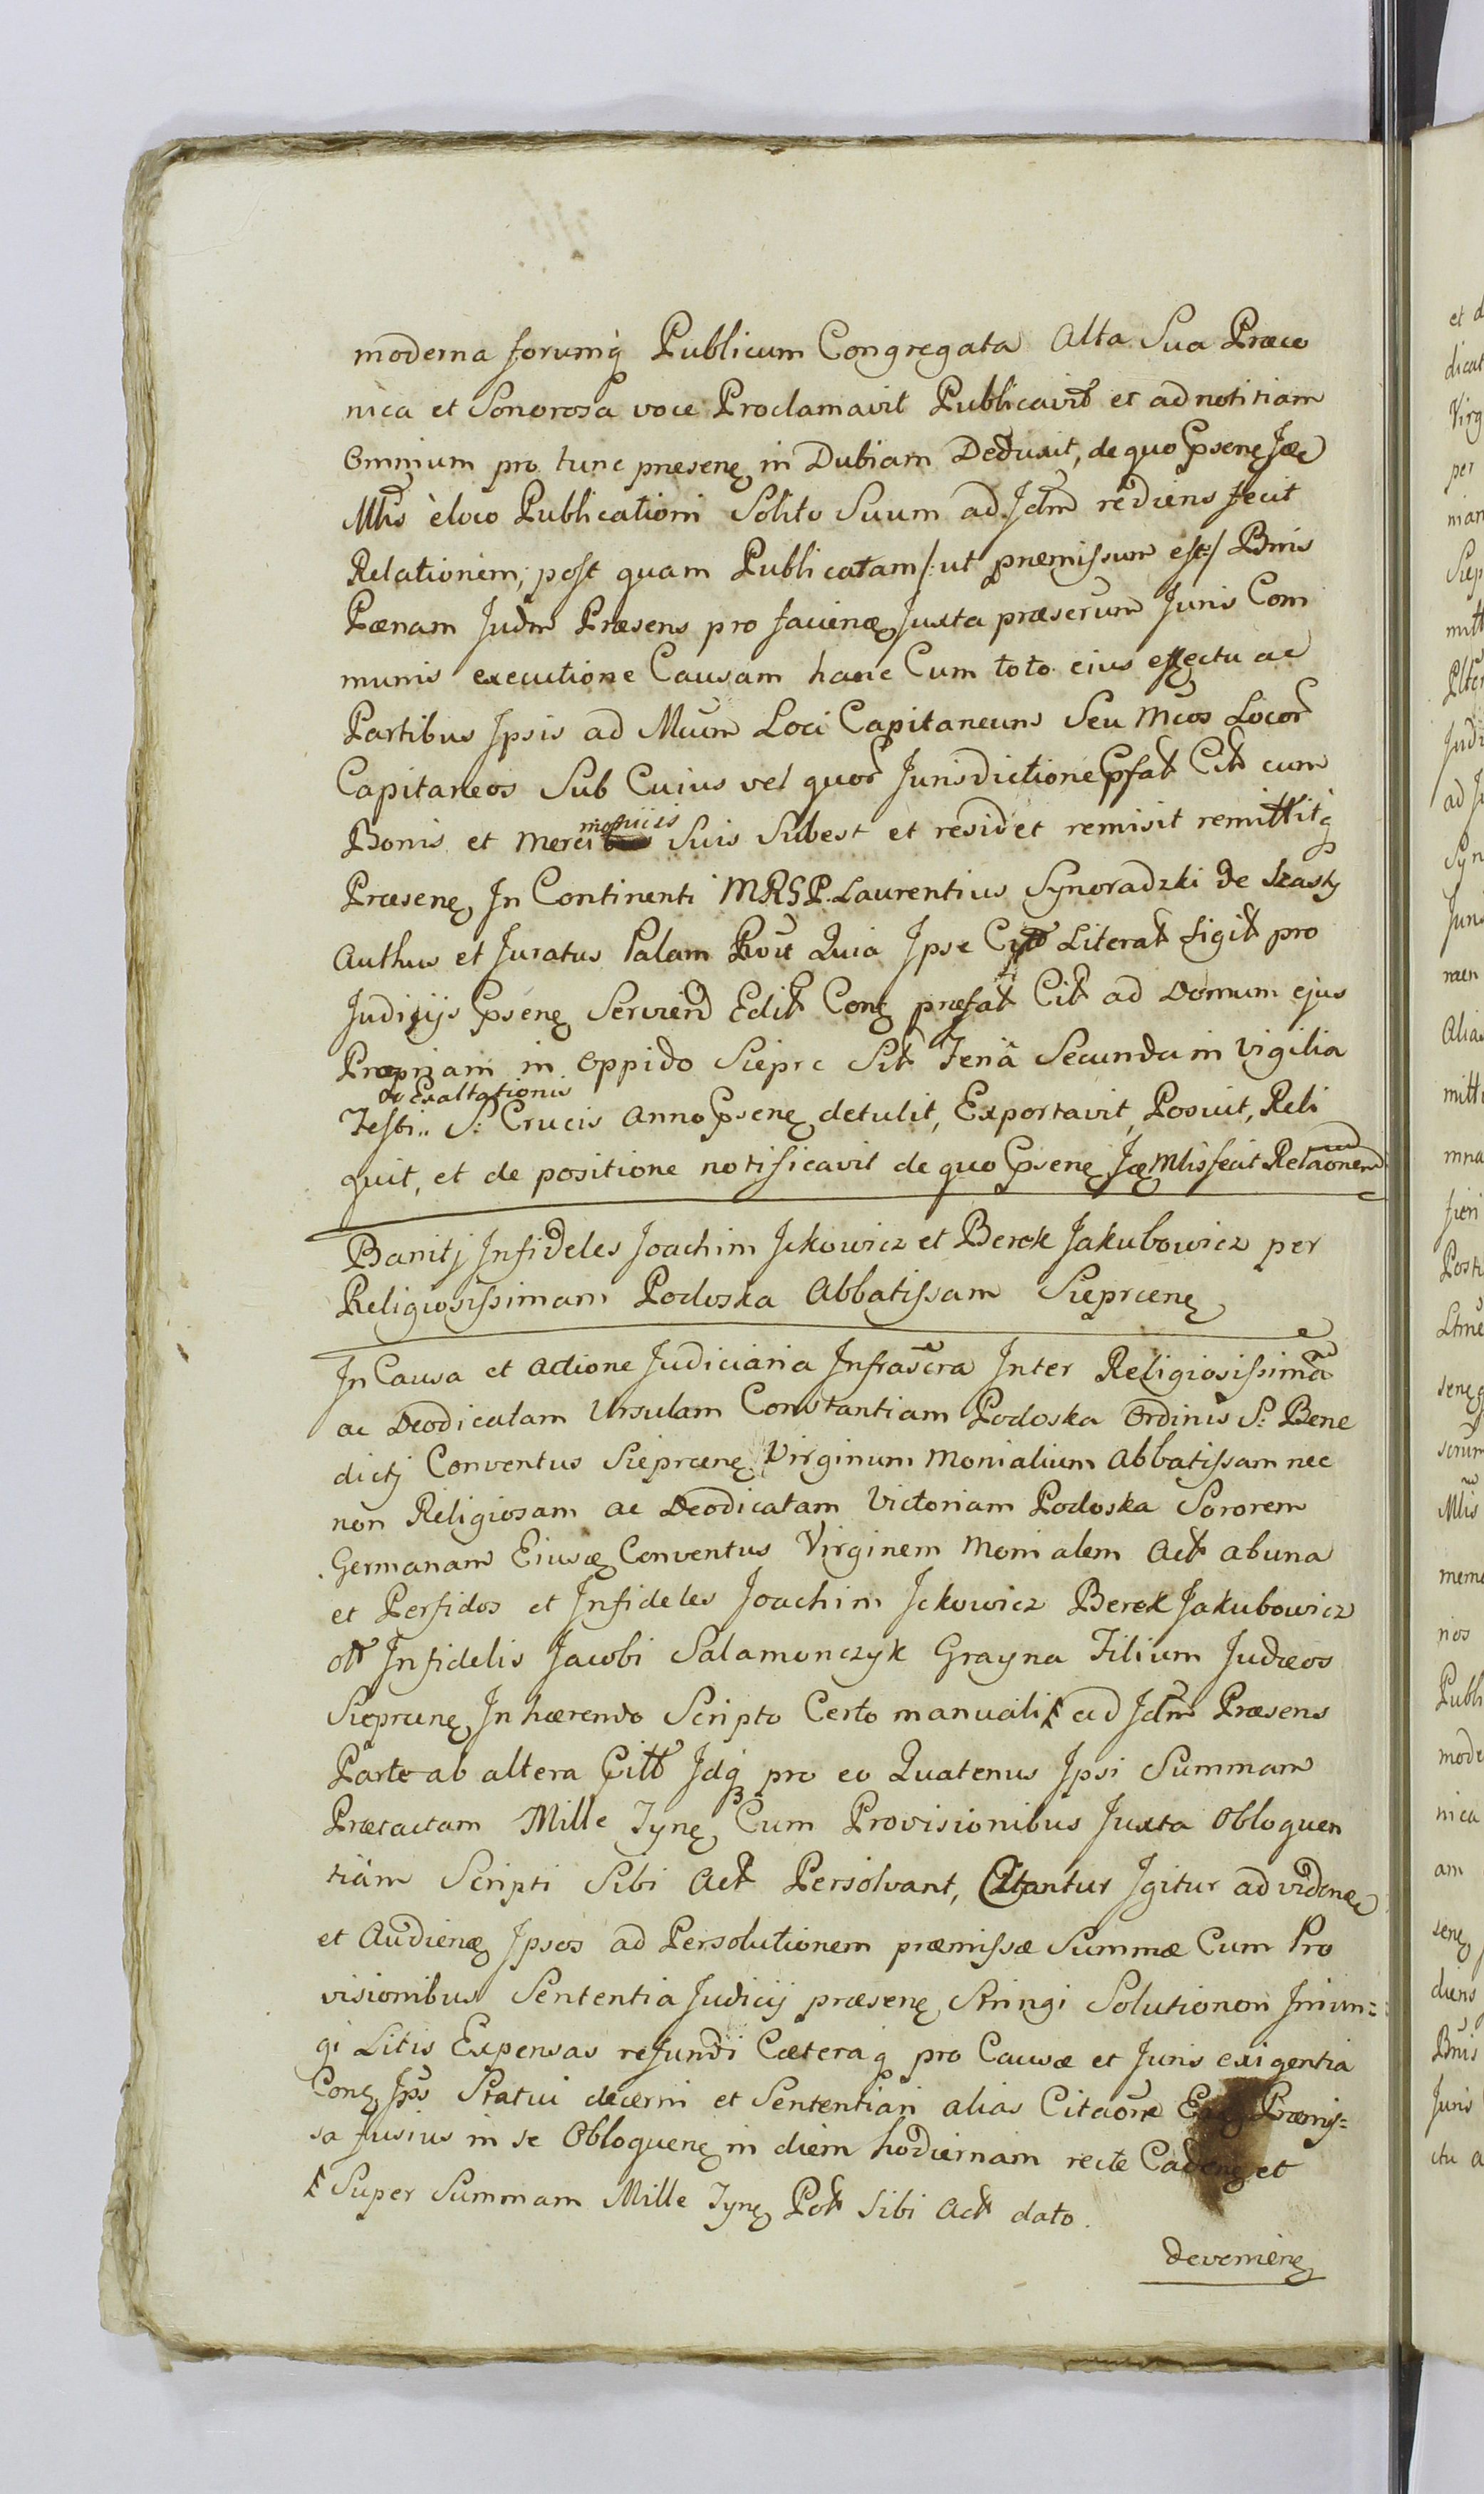 moderna forumq Publicum Congregata Alta Sua Præco
nica et Sonorosa voce Proclamavit Publicavit et ad notitiam
Omnium pro tunc præsen in Dubiam Deduxit, de quo Psen Jæ
Mlis è loco Publicationi Solito Suum ad Jdm rediens fecit
Relationem; post quam Publicatam /:ut præmissum est:/ Bnis
Pænam Judm Præsens pro facien Juxta præscrum Juris Com
munis executione Causam hanc Cum toto eius effectu ac
Partibus Ipsis ad Mcum Loci Capitaneum Seu Mcos Locor
Capitaneos Sub Cuius vel quor Jurisdictione Pfat Cit cum
Bonis et Merci Suis Subest et residet remisit remittitq
Præsen In Continenti MRSP. Laurentius Synoradzki de
Authus et Juratus Palam Quia Ipse Literat Sigit pro
Judicijs Psen Servien Edit Con præfat Cit ad Domum ejus
Propriam in Oppido Sieprc Sit Feriâ Secunda in Vigilia
Exaltationis
Festi S: Crucis Anno Psen detulit, Exportavit, Posuit, Reli
quit, et de positione notificavit de quo Psen Jæ Mlis fecit Relaonem
Banitj Infideles Joachim Jckowicz et Berek Jakubowicz per
Religiosissimam Podoska Abbatissam Sieprcen
In Causa et Actione Judiciaria Infrascra Inter Religiosissimã
ac Deodicatam Ursulam Constantiam Podoska Ordinis S: Bene
dictj Conventus Sieprcen Virginum Monialium Abbatissam nec
non Religiosam ac Deodicatam Victoriam Podoska Sororem
Germanam Eiusd Conventus Virginem Monialem Act ab una
et Perfidos et Infideles Joachim Jckowicz Berek Jakubowicz
olt Infidelis Jacobi Salamonczyk Grayna Filium Judæos
Sieprcen Inhærendo Scripto Certo manuali ad Jdm Præsens
Parte ab altera Citt Idq pro eo Quatenus Ipsi Summam
Prætactam Mille Tyn Cum Provisionibus Juxta Obloquen
tiam Scripti Sibi Act Persolvant, Citantur Igitur ad viden
et Audien Ipsos ad Persolutionem præmissæ Summæ Cum Pro
visionibus Sententia Judicij præsen Stringi Solutionem Iniun=
gi Litis Expensas refundi Cæteraq pro Causæ et Juris exigentia
Con Ips Statui decerni et Sententiari alias Citaone Præmis=
sa fusius in se Obloquen in diem hodiernam recte Caden et
Super Summam Mille Tyn Pol Sibi Act dato.
devenien